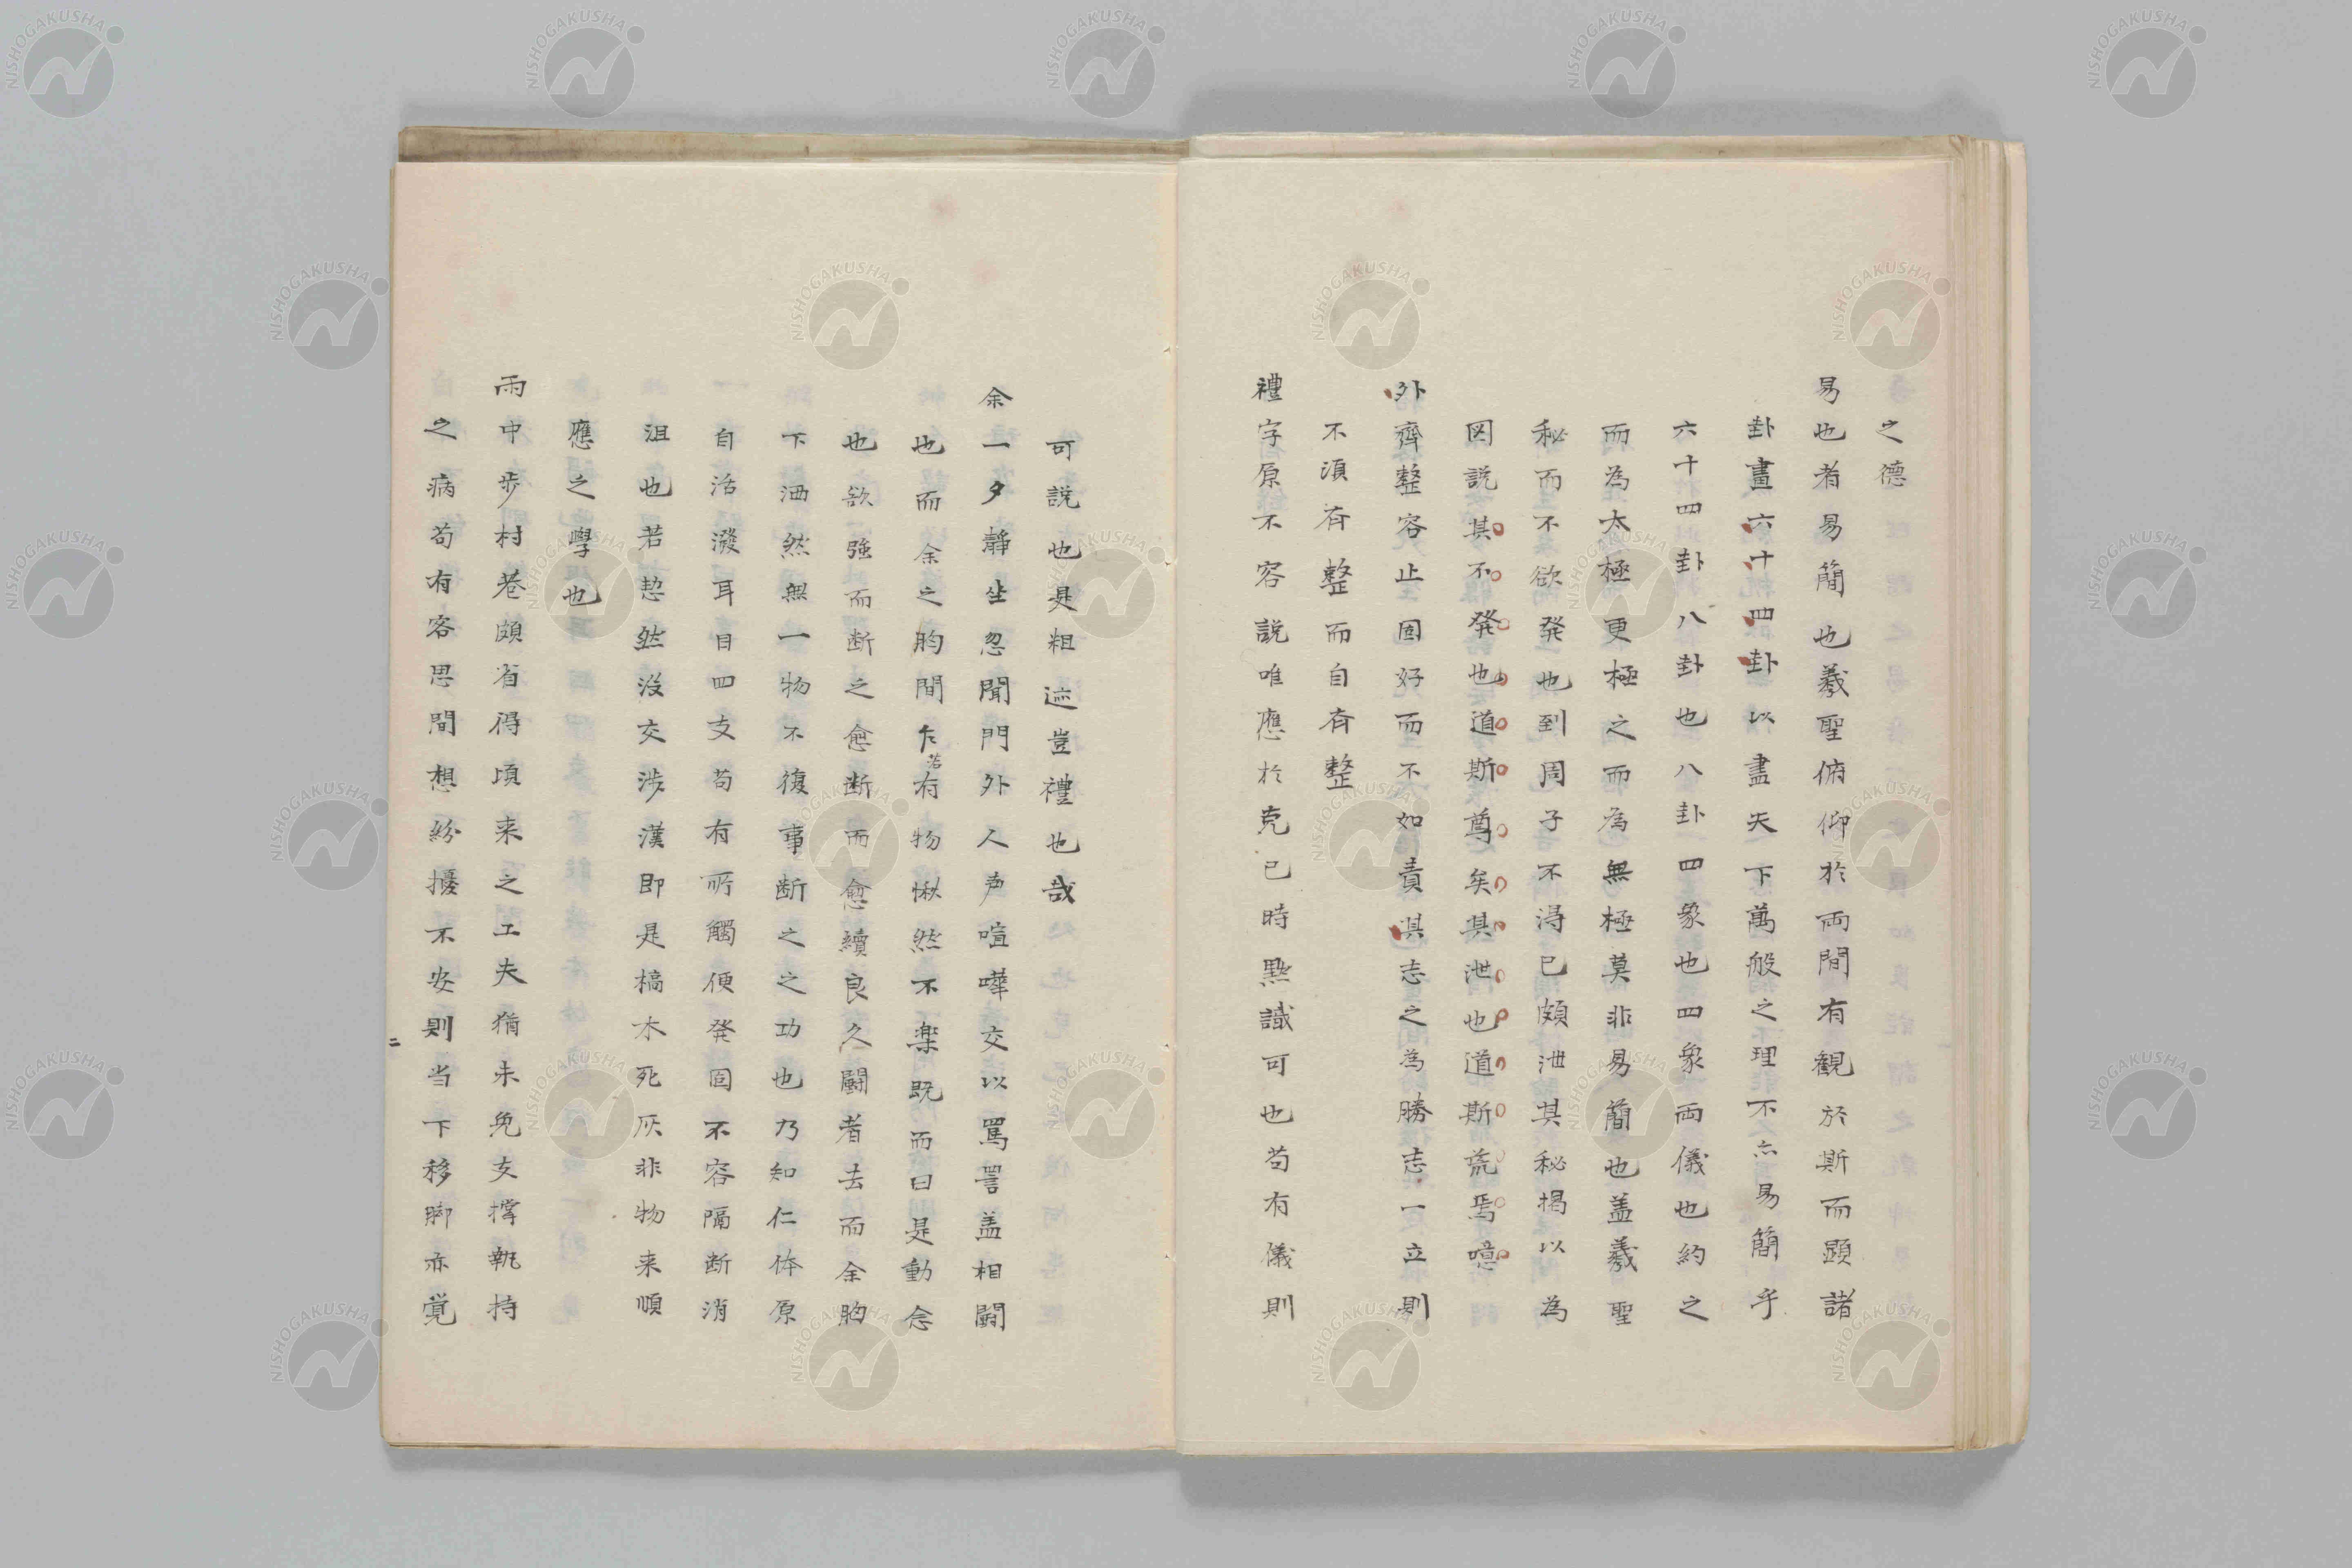 之德
易也者易簡也羲聖俯仰於両間有観於斯而顕諸
卦畫六十四卦以盡天下萬般之理不亦易簡乎
六十四卦八卦也八卦四象也四象両儀也約之
而為太極更極之而為無極莫非易簡也盖羲聖
秘而不欲発也到周子不得已頗泄其秘掲以為
図説其不発也道斯尊矣其泄也道斯荒焉噫
外齊整容止固好而不如責其志之為勝志一立則
不須存整而自存整
禮字原不容説唯應於克已時黙識可也苟有儀則
可説也是粗迹豈禮也哉
余一夕靜坐忽聞門外人声喧嘩交以罵詈盖相鬪
也而余之胸間乍若有物愀然不楽既而曰是動念
也欲強而断之愈断而愈續良久鬪者去而余胸
下洒然無一物不復事断之之功也乃知仁体原
自活潑耳目四支苟有所觸便発固不容隔断消
沮也若恝然没交渉漠即是槁木死灰非物来順
應之學也
雨中歩村巷頗省得頃来之工夫猶未免支撑執持
之病苟有客思間想紛擾不安則当下移脚亦覚
二
NISHOGAKUSHA